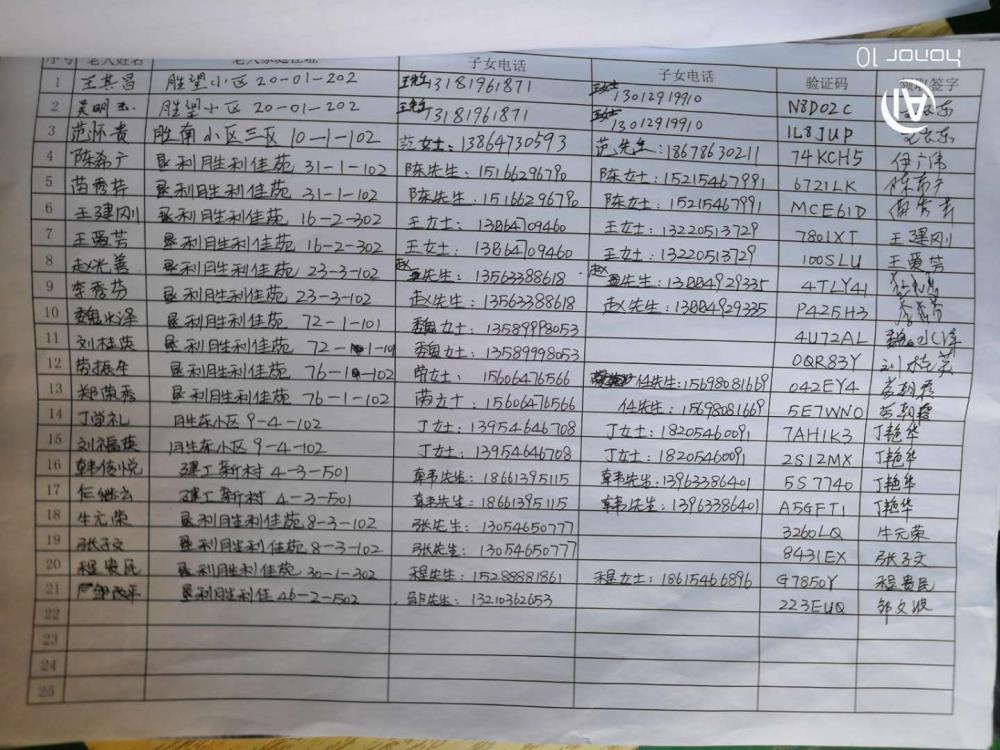 honor 10
AI
序号 老人姓名 老人家庭住址 子女电话 子女电话 验证码 领取签字
1 王其昌 胜望小区20-01-202 13181961871 13012919910 N8D02C
2 吴明玉 胜望小区20-01-202 13181961871 13012919910 1L8JUP
3 范怀贵 胜南小区三区10-1-102 范女士:13864730593 范先生:18678630211 74KCH5
4 陈希广 垦利胜利佳苑31-1-102 陈先生:15166296790 陈女士:15215467991 6721LK
5 苘秀荐 垦利胜利佳苑31-1-102 陈先生:15166296790 陈女士:15215467991 MCE61D
6 王建刚 垦利胜利佳苑16-2-302 王女士:13864709460 王女士:13220513729 7801XT 王建刚
7 王爱芳 垦利胜利佳苑16-2-302 王女士:13864709460 王女士:13220513729 100SLU 王爱芳
8 赵光善 垦利胜利佳苑23-3-102 赵先生:13563388618 赵先生:13884929335 4TLY41
9 李秀芬 垦利胜利佳苑23-3-102 赵先生:13563388618 赵先生:13884929335 P425H3
10 魏水泽 垦利胜利佳苑72-1-101 魏女士:13589998053 4U72AL 魏水泽
11 刘桂英 垦利胜利佳苑72-1-101 魏女士:13589998053 0QR83Y 刘桂英
12 苘振生 垦利胜利佳苑76-1-102 苘女士:15606476566 任先生:15698081669 042EY4
13 郑荣秀 垦利胜利佳苑76-1-102 苘女士:15606476566 任先生:15698081669 5E7WN0
14 丁学礼 胜东小区9-4-102 丁女士:13954646708 丁女士:18205460091 7AH1K3 丁艳华
15 刘福英 胜东小区9-4-102 丁女士:13954646708 丁女士:18205460091 2S12MX 丁艳华
16 韩信悦 建工新村4-3-501 韩先生:18661395115 韩先生:13963386401 5S7740 丁艳华
17 建工新村4-3-501 韩先生:18661395115 韩先生:13963386401 A5GFT1 丁艳华
18 牛元荣 垦利胜利佳苑8-3-102 张先生:13054650777 3260LQ 牛元荣
19 张子文 垦利胜利佳苑8-3-102 张先生:13054650777 8431EX 张子文
20 程贵民 垦利胜利佳苑30-1-302 程先生:15288881861 程女士:18615466896 G7850Y 程贵民
21 垦利胜利佳46-2-502 邹先生:13210362653 223EUQ
22
23
24
25